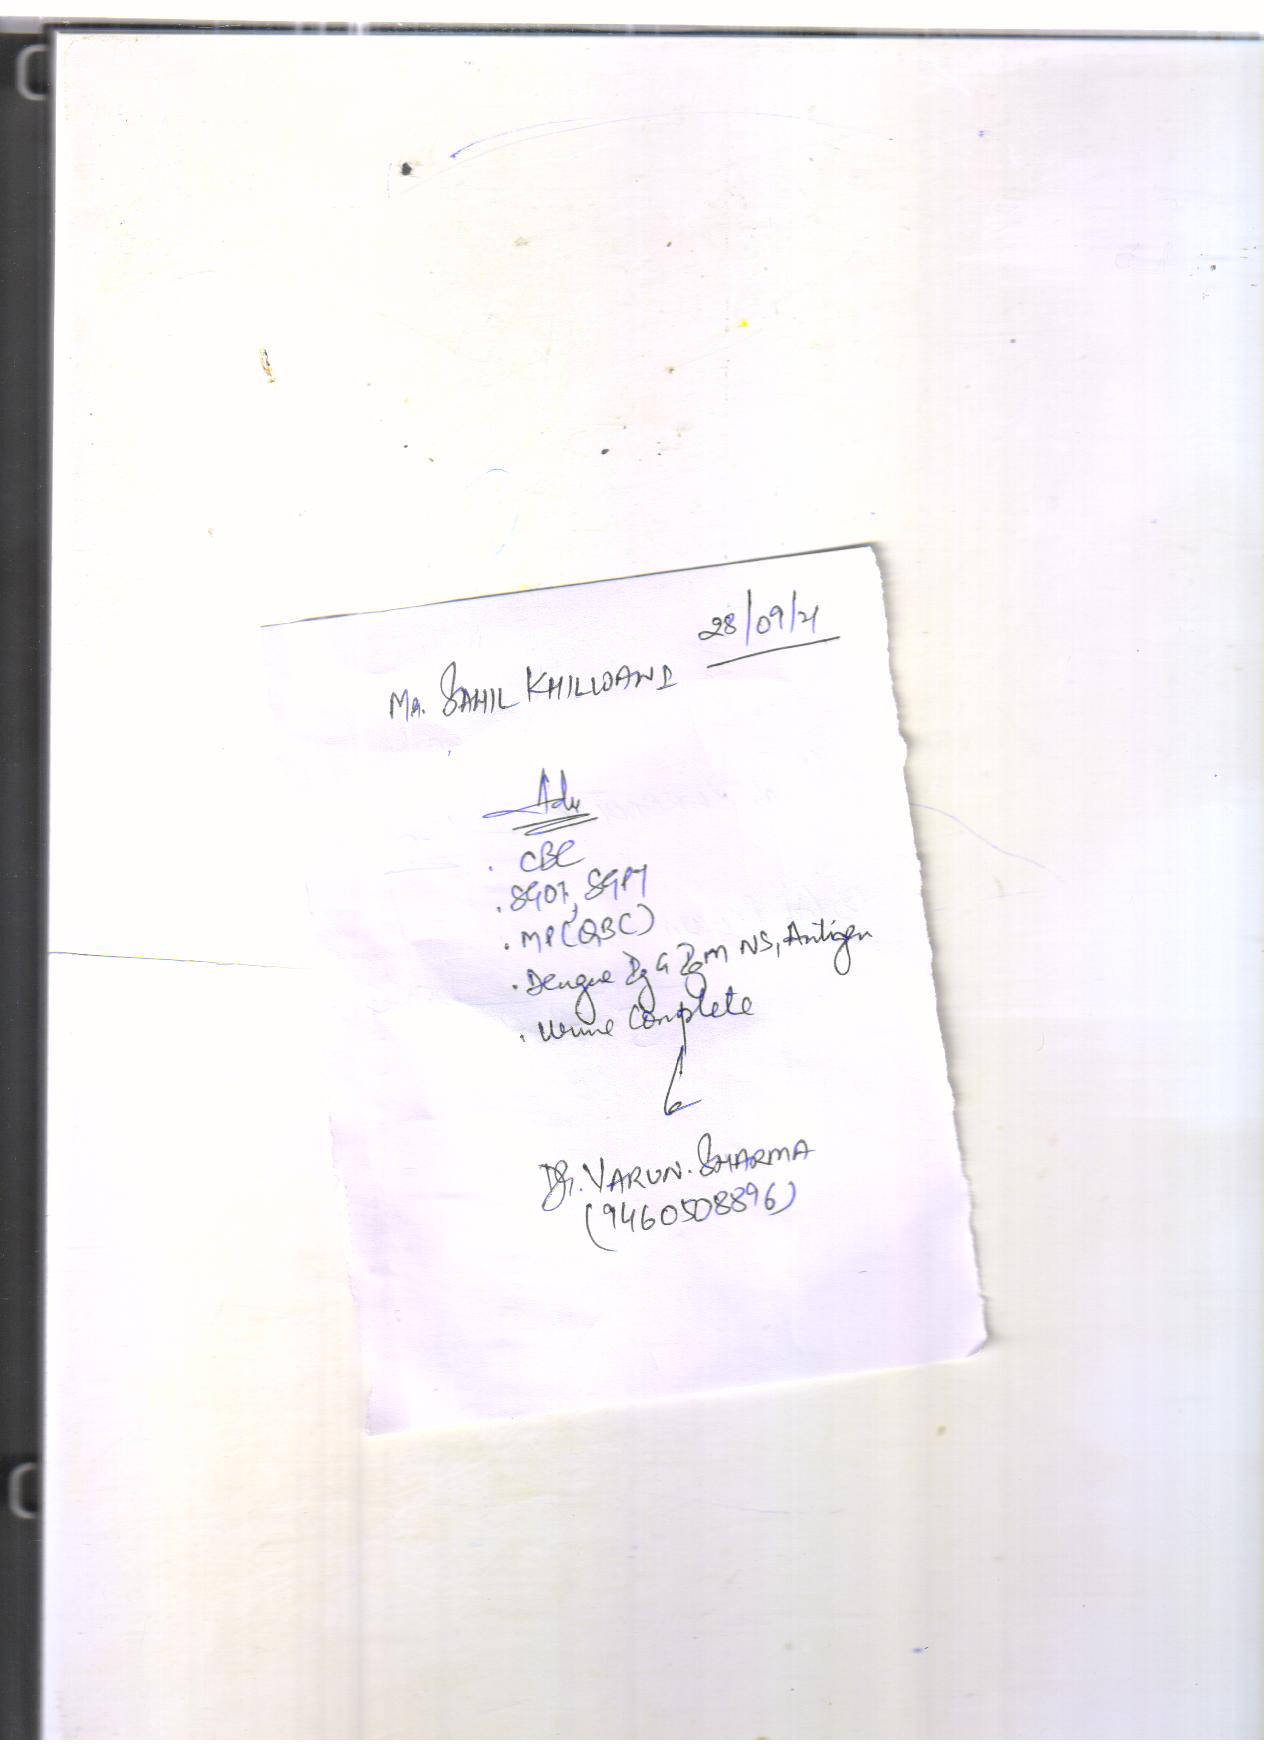 28/09/21
Mr. SAHIL KHILWANI
Adv
. CBC
. SGOT, SGPT
. MP(QBC)
. Dengue IgG IgM NS1 Antigen
. Urine Complete
Dr. VARUN. SHARMA
(9460508896)